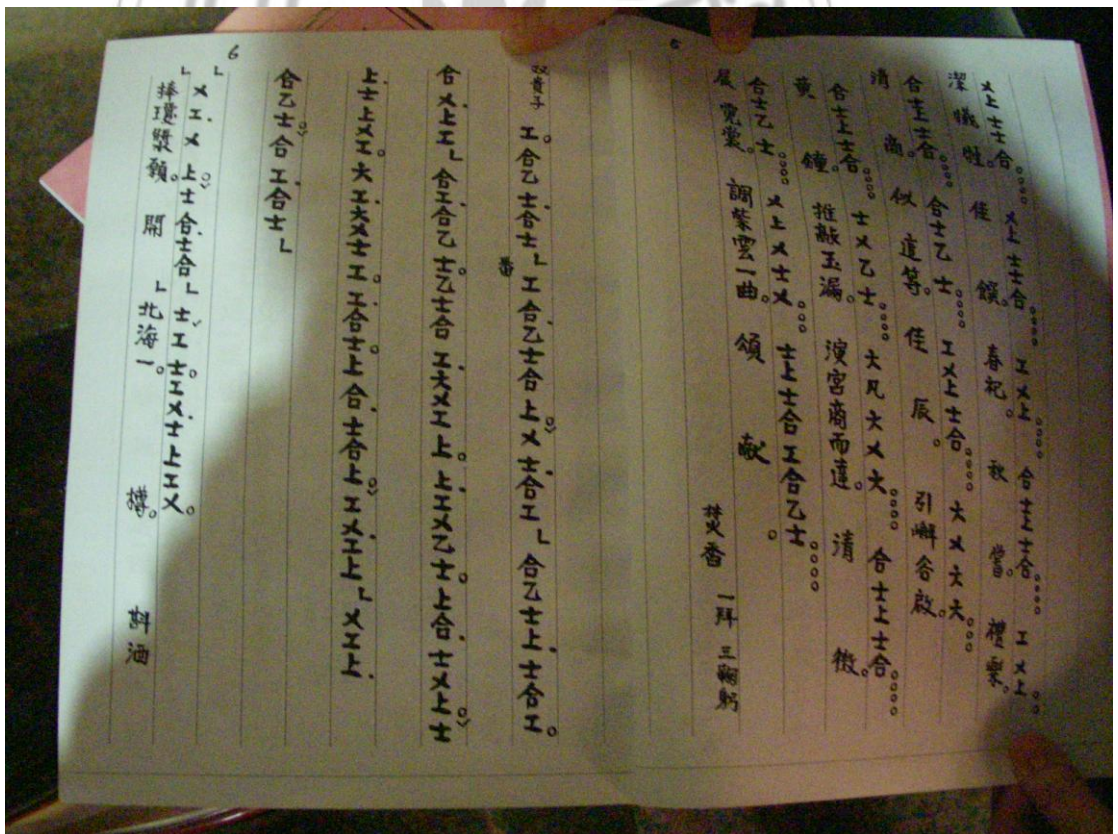 5
乂上士士合。。。。 乂上士士合。。。。 工乂上。。。。 合士上士合。。。。 工乂上。
潔犧牲。 佳饌。 春祀。 秋嘗。 禮樂。
合士上士合。。。。 合士乙士。。。。 工乂上士合。。。。 大乂大大。。。。
清商。似 佳辰。 引
合士上士合。。。。 士乂乙士。。。。 大凡大乂大。。。。 合士上士合。。。。
黄鐘。 推敲玉漏。 演宮商而達。 清徵。
合士乙士。。。。 乂上乂士乂。。。 士上士合工合乙士。。。。
展霓裳。 調紫雲一曲。 頌献。
焚香 一拜 三鞠躬
6
双貴子 工。合乙士合士∟工合乙士合上乂士合工∟合乙士上士合工。
番
合乂上工∟合工合乙士乙士合工大乂工上。上工乂乙士。上合士乂上士
上士上乂工。大工大乂士工。工合士上合士合上工乂工上∟乂工上
合乙士合工合士∟
∟乂工乂上士合士合∟士工士。工乂士上工乂。
∟捧璚漿願。開∟北海一。 樽。 斟酒